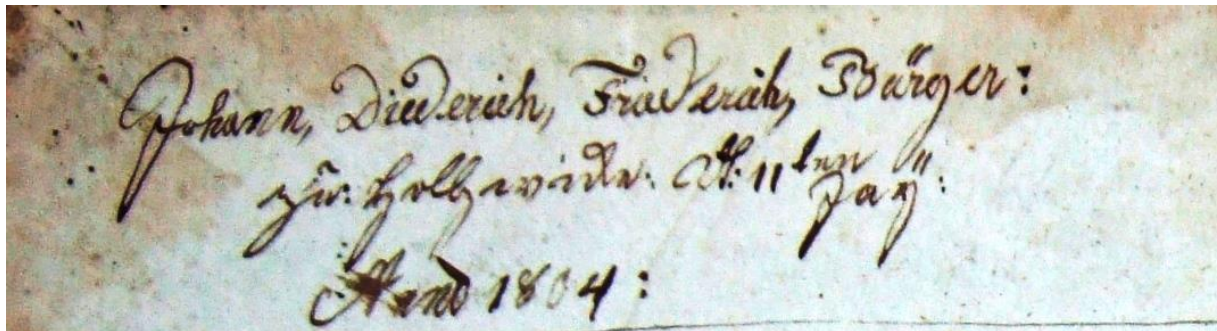 Johann, Diederich, Friederich, Bürger:
zu: Holtzwide: d: 11ten Jay:
Anno 1804: